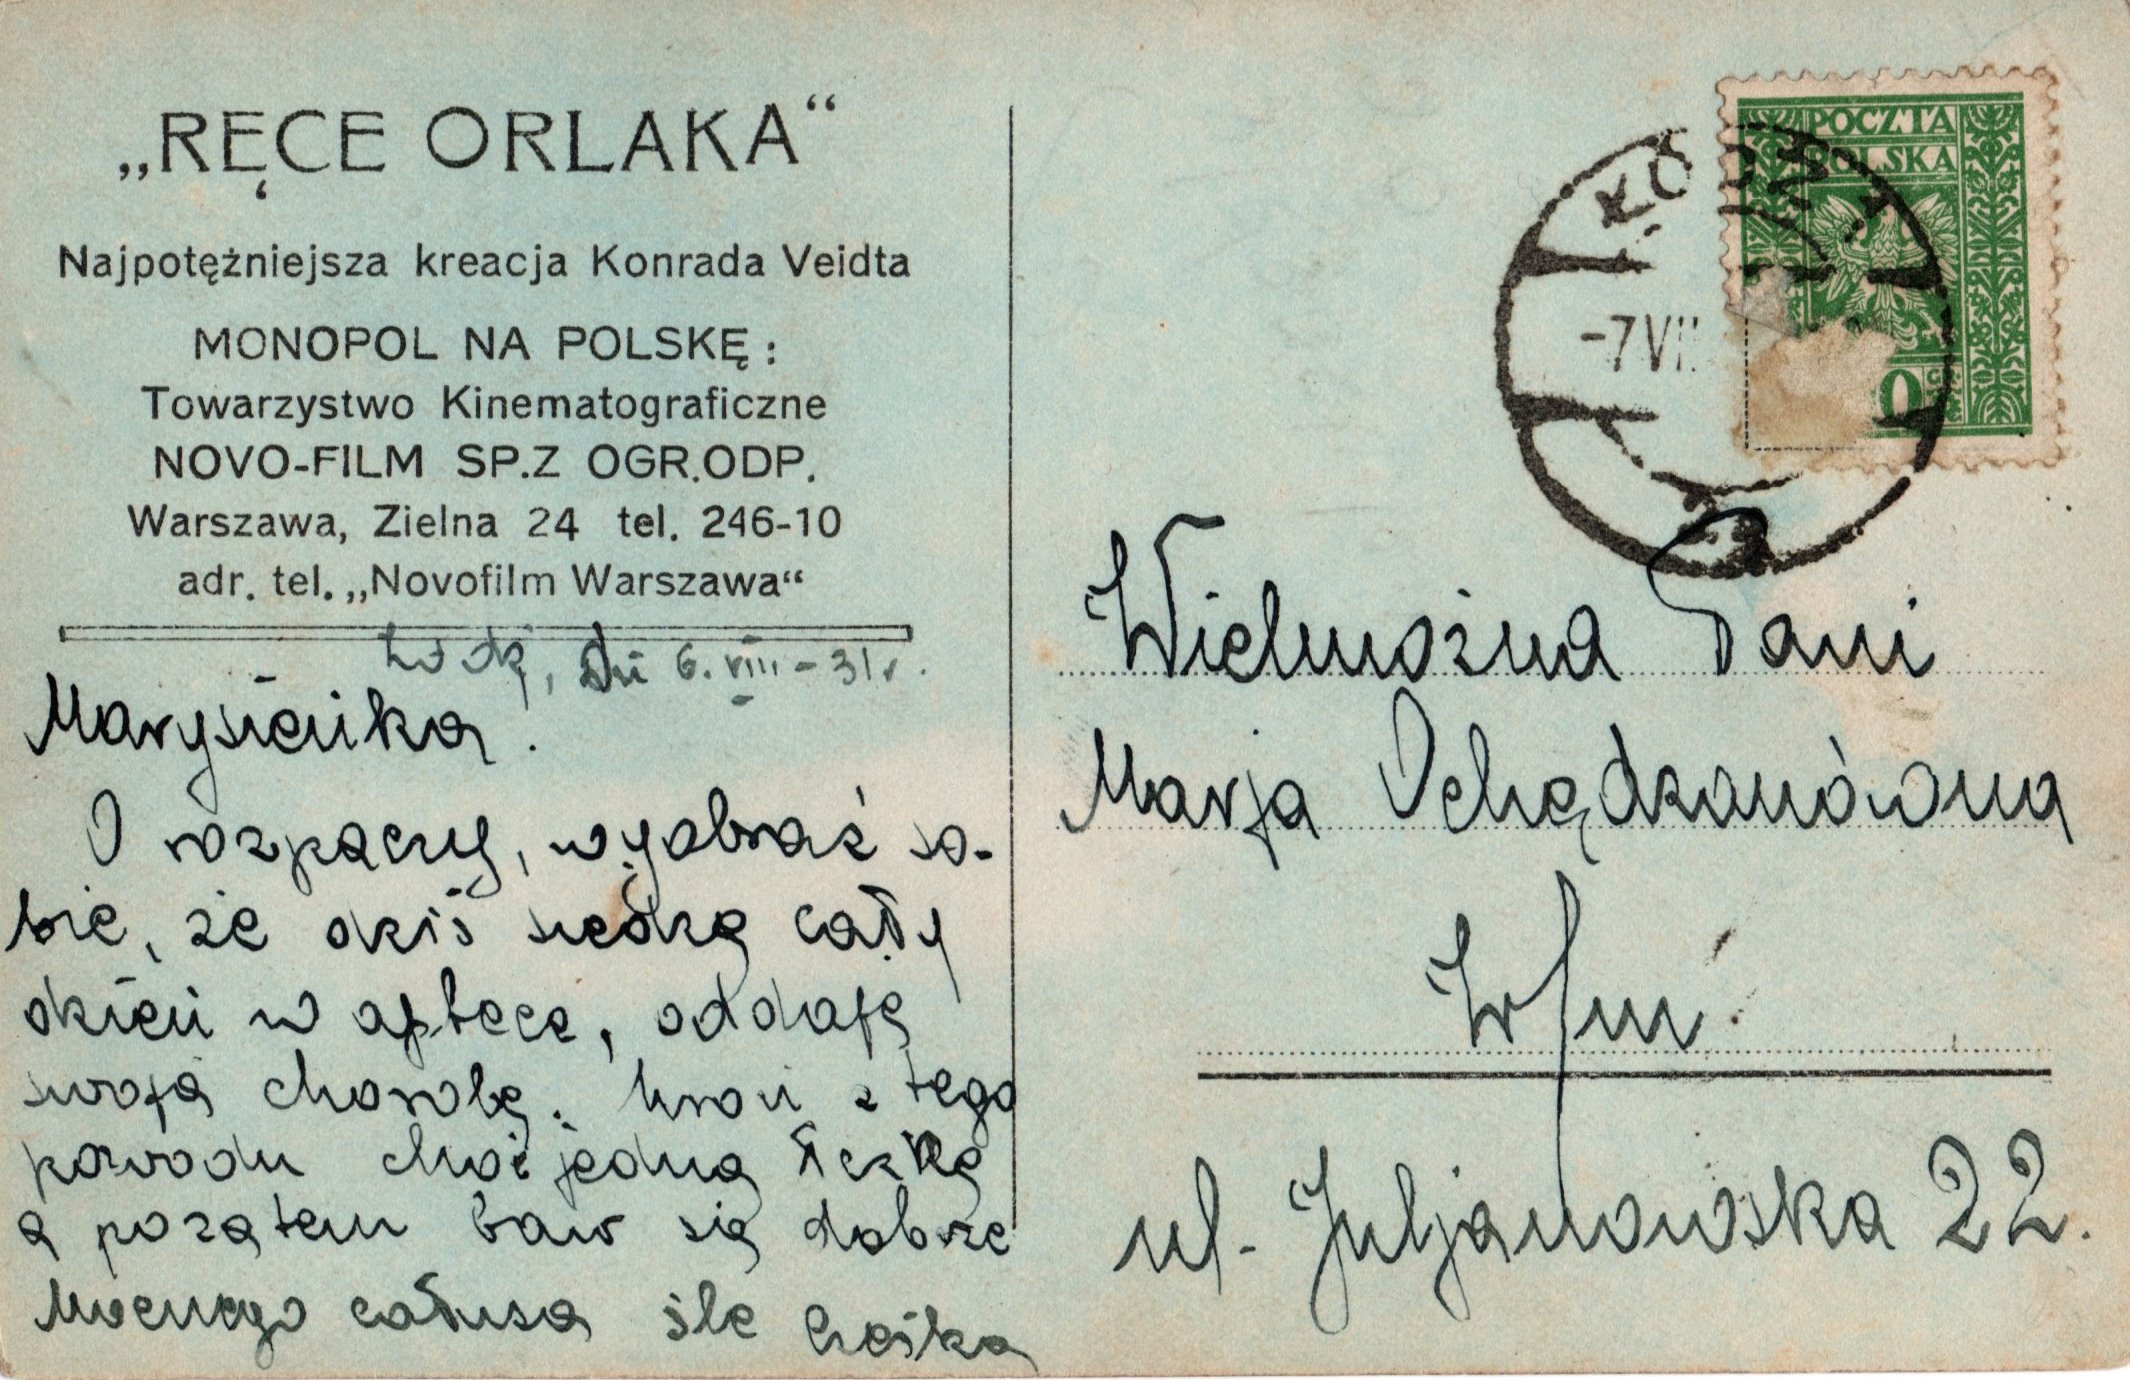 „RĘCE ORLAKA“
Najpotężniejsza kreacja Konrada Veidta
MONOPOL NA POLSKĘ:
Towarzystwo Kinematograficzne
NOVO-FILM SP.Z OGR.ODP.
Warszawa, Zielna 24 tel. 246-10
adr. tel. „Novofilm Warszawa“
6.VIII-31r.
Marysieńka!
O rozpaczy, wyobraź so-
bie, że dziś siedzę cały
dzień w aptece, oddaję
swoją chorobę. Uroń z tego
powodu choć jedną łezkę
a pozatem baw się dobrze
Mocnego całusa śle Cześka
POCZTA
POLSKA
-7 VII
Wielmożna Pani
Marja Ochędzanówna
ul. Juljanowska 22.